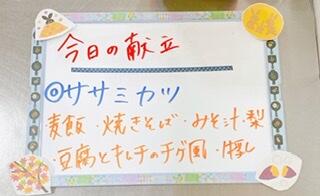 今日の献立
◎ササミカツ
麦飯・焼きそば・みそ汁・梨
・豆腐とキムチのチゲ風・豚し